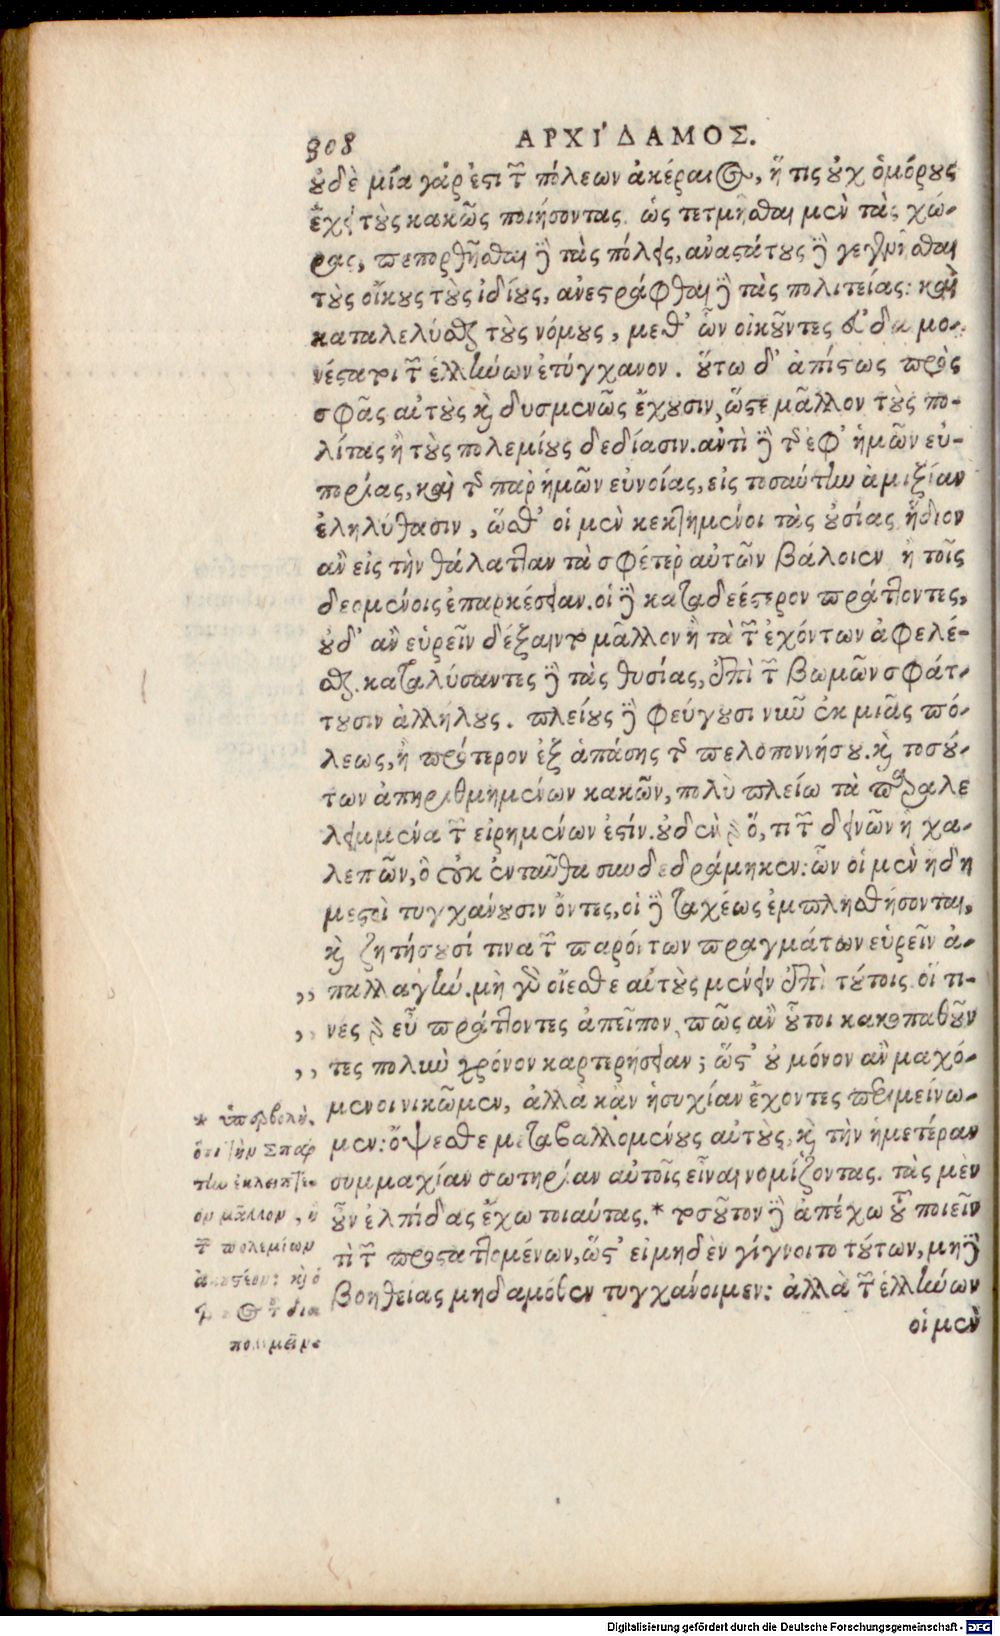 308
ΑΡΧΙ΄ΔΑΜΟΣ.
οὐδὲ μία γάρ ἐστι τῶν πόλεων ἀκέραιος, ἥ τις οὐχ ὁμόρους
ἔχει τοὺς κακῶς ποιήσοντας. ὡς τετμῆσθαι μὲν τὰς χώ-
ρας, πεπορθῆσθαι δὲ τὰς πόλεις, ἀναστάτους δὲ γεγενῆσθαι
τοὺς οἴκους τοὺς ἰδίους, ἀνεστράφθαι δὲ τὰς πολιτείας: καὶ
καταλελύσθαι τοὺς νόμους, μεθ' ὧν οἰκοῦντες εὐδαιμο-
νέστατοι τῶν ἑλλήνων ἐτύγχανον. οὕτω δ' ἀπίστως πρὸς
σφᾶς αὐτοὺς καὶ δυσμενῶς ἔχουσιν, ὥστε μᾶλλον τοὺς πο-
λίτας ἢ τοὺς πολεμίους δεδίασιν. ἀντὶ δὲ τῆς ἐφ' ἡμῶν εὐ-
πορίας, καὶ τῆς παρ' ἡμῶν εὐνοίας, εἰς τοσαύτην ἀμιξίαν
ἐληλύθασιν, ὥσθ' οἱ μὲν κεκτημένοι τὰς οὐσίας ἥδιον
ἂν εἰς τὴν θάλατταν τὰ σφέτερ' αὐτῶν βάλοιεν ἢ τοῖς
δεομένοις ἐπαρκέσειαν. οἱ δὲ καταδεέστερον πράττοντες,
οὐδ' ἂν εὑρεῖν δέξαιντο μᾶλλον ἢ τὰ τῶν ἐχόντων ἀφελέ-
σθαι. καταλύσαντες δὲ τὰς θυσίας, ἐπὶ τῶν βωμῶν σφάτ-
τουσιν ἀλλήλους. πλείους δὲ φεύγουσι νῦν ἐκ μιᾶς πό-
λεως, ἢ πρότερον ἐξ ἁπάσης τῆς πελοποννήσου. καὶ τοσού-
των ἀπηριθμημένων κακῶν, πολὺ πλείω τὰ παραλε
λειμμένα τῶν εἰρημένων ἐστίν. οὐδὲν γὰρ ὅ, τι τῶν δεινῶν ἢ χα-
λεπῶν, ὃ οὐκ ἐνταῦθα συνδεδράμηκεν: ὧν οἱ μὲν ἤδη
μεστοὶ τυγχάνουσιν ὄντες, οἱ δὲ ταχέως ἐμπλησθήσονται,
καὶ ζητήσουσί τινα τῶν παρόντων πραγμάτων εὑρεῖν ἀ-
,, παλλαγήν. μὴ γὰρ οἴεσθε αὐτοὺς μένειν ἐπὶ τούτοις. οἵ τι-
,, νες γὰρ εὖ πράττοντες ἀπεῖπον, πῶς ἂν οὗτοι κακοπαθοῦν
,, τες πολὺν χρόνον καρτερήσειαν; ὥστ' οὐ μόνον ἂν μαχό-
μενοι νικῶμεν, ἀλλὰ κἂν ἡσυχίαν ἔχοντες περιμείνω-
μεν: ὄψεσθε μεταβαλλομένους αὐτοὺς, καὶ τὴν ἡμετέραν
συμμαχίαν σωτηρίαν αὐτοῖς εἶναι νομίζοντας. τὰς μὲν
οὖν ἐλπίδας ἔχω τοιαύτας.* τοσοῦτον δὲ ἀπέχω τοῦ ποιεῖν
τὶ τῶν προσταττομένων, ὥστ' εἰ μηδὲν γίγνοιτο τούτων, μηδὲ
βοηθείας μηδαμόθεν τυγχάνοιμεν: ἀλλὰ τῶν ἑλλήνων
οἱ μὲν
* ὑπερβολὴ.
ὅτι τὴν Σπάρ
την ἐκλειπτέ-
ον μᾶλλον, ἢ
τῶν πολεμίων
ἀκουστέον: καὶ ὁ
διὰ